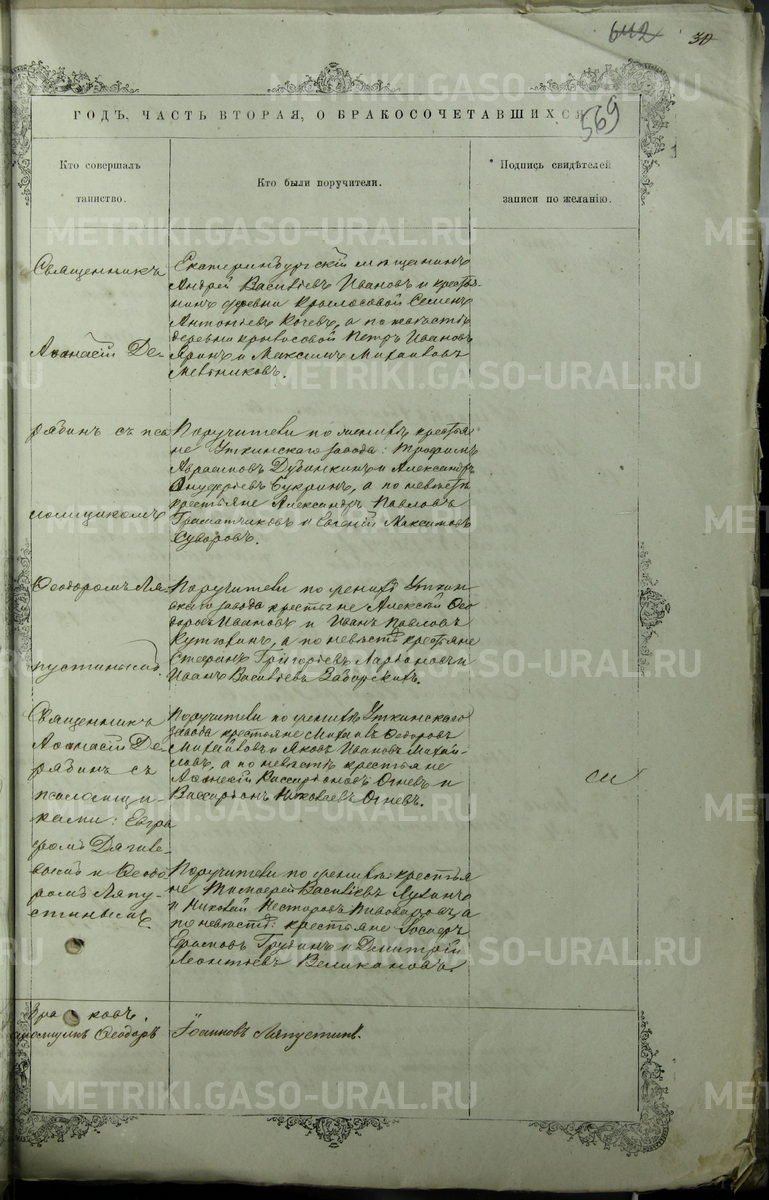 642
30
569
ГОДЪ, ЧАСТЬ ВТОРАЯ, О БРАКОСОЧЕТАВШИХСЯ
Кто совершалъ
таинство.
Кто были поручители.
Подпись свидѣтелей
записи по желанію.
Священникъ
Аѳанасій Де-
рябинъ съ пса
ломщикомъ
Ѳеодоромъ Ля-
пустинымъ.
Екатеринбургскій мѣщанинъ
Андрей Васильевъ Ивановъ и крестья
нинъ деревни Крылосовой Семенъ
Антоньевъ Кочевъ, а по невѣстѣ
деревни Крылосовой Петръ Ивановъ
Яринъ и Максимъ Михаиловъ
Мевтниковъ.
Поручители по женихѣ крестья
не Уткинскаго завода: Трофимъ
Авраамовъ Дубинкинъ и Александръ
Ануфріевъ Сукринъ, а по невѣстѣ
крестьяне Александръ Павловъ
Граматчиковъ и Евгеній Максимовъ
Суворовъ.
Поручители по женихѣ Уткин
скаго завода крестьяне Алексѣй Ѳео
доровъ Ивановъ и Иванъ Павловъ
а по невѣстѣ крестьяне
Стефанъ Григорьевъ Ларіоновъ и
Иванъ Васильевъ Заборскихъ.
Священникъ
Аѳанасій Де-
рябинъ съ
псаломщи-
ками: Евгра
фомъ Дягиле-
вымъ и Ѳеодо
ромъ Ляпу-
стинымъ.
Поручители по женихѣ Уткинскаго
завода крестьяне Михаилъ Ѳеодоровъ
Михайловъ и Яковъ Ивановъ Михай-
ловъ, а по невѣстѣ крестьяне
Алексѣй Виссаріоновъ Огневъ и
Виссаріонъ Николаевъ Огневъ.
Поручители по женихѣ: крестья
не Тимоѳей Васильевъ Луханъ
и Николай Несторовъ Пивоваровъ, а
по невѣстѣ: крестьяне
Ефимовъ Грубинъ и Димитрій
Леонтьевъ Великановъ.
Ѳеодоръ
Іоанновъ Ляпустинъ.
METRIKI.GASO-URAL.RU
METRIKI.GASO-URAL.RU
METRIKI.GASO-URAL.RU
METRIKI.GASO-URAL.RU
METRIKI.GASO-URAL.RU
METRIKI.GASO-URAL.RU
METRIKI.GASO-URAL.RU
METRIKI.GASO-URAL.RU